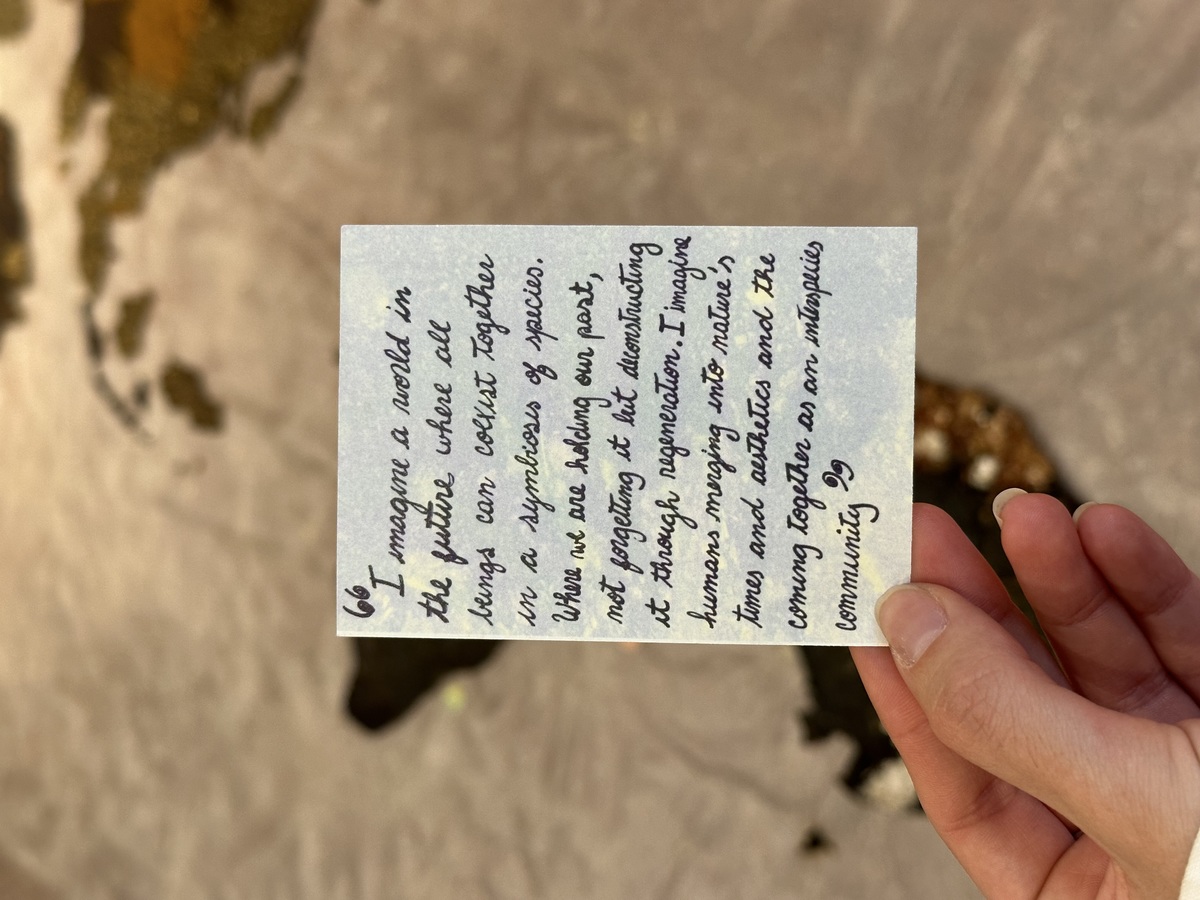 “
I imagine a world in
the future where all
beings can coexist together
in a symbiosis of species.
Where we are holding our past,
not forgetting it but deconstructing
it through regeneration. I imagine
humans merging into nature's
times and aesthetics and the
coming together as an interspecies
community ”